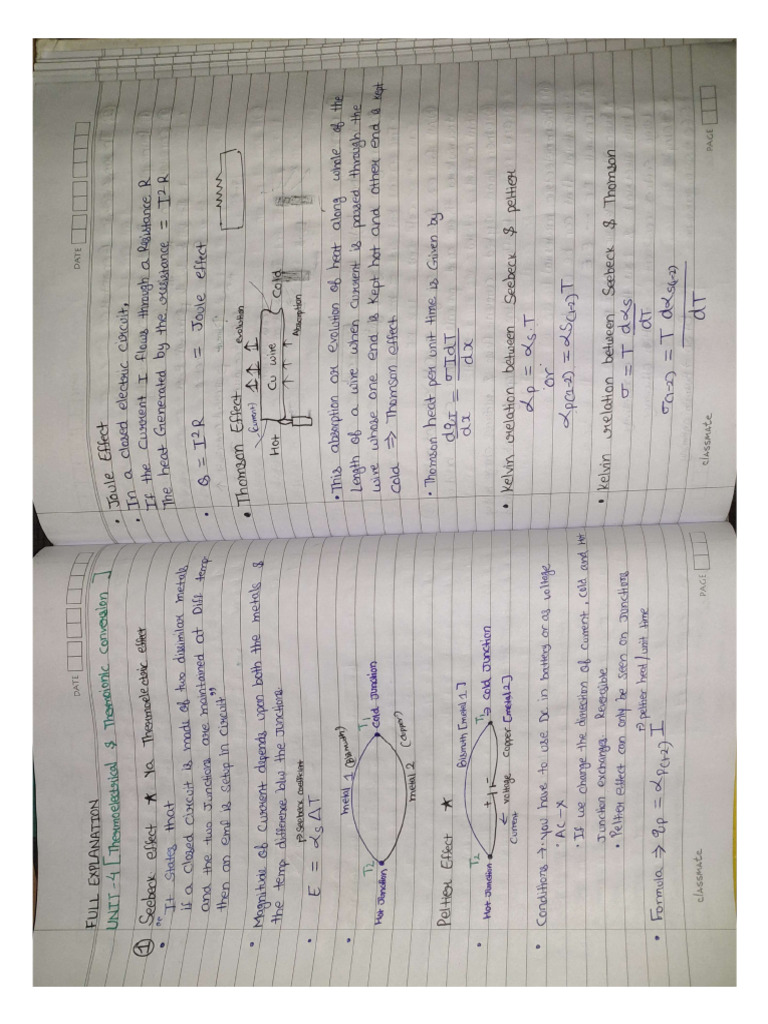 DATE
FULL EXPLANATION
UNIT-4 [Thermoelectrical & Thermoionic Conversion]
① Seebeck effect ★ Ya Thermoelectric effect
• "It States that
If a closed circuit is made of two dissimilar metals
and the two Junctions are maintained at Diff temp
then an emf is setup in circuit"
• Magnitude of Current depends upon both the metals &
the temp difference b/w the Junctions.
→ Seebeck coefficient
• E = αs ΔT
metal 1 (Bismuth)
T2
T1
Hot Junction
Cold Junction
metal 2 (Copper)
Peltier Effect ★
Bismuth [metal 1]
T2
T1
Hot Junction
→ Cold Junction
+ -
← voltage Copper [metal 2]
Current
• Conditions → • you have to use Dc in battery or as voltage
• AC - X
• If we change the direction of current, Cold and Hot
Junction exchanges. Reversible
• Peltier effect can only be seen on Junctions
→ peltier heat/unit time
• Formula ⇒ qp = αp(1-2) I
classmate
PAGE
DATE
• Joule Effect
• In a closed electric circuit,
If the current I flows through a Resistance R
The heat Generated by the resistance = I²R
• Q = I²R = Joule effect
• Thomson Effect
(current)
Evolution
Hot
Cu wire
Cold
Absorption
• This absorption or evolution of heat along whole of the
Length of a wire when current is passed through the
wire whose one end is kept hot and other end is kept
cold ⇒ Thomson effect
• Thomson heat per unit time is Given by
dqτ/dx = σIdT/dx
• Kelvin relation between Seebeck & peltier
αp = αs.T
or
αp(1-2) = αs(1-2)T
• Kelvin relation between Seebeck & Thomson
σ = T dαs/dT
σ(1-2) = T dαs(1-2)/dT
classmate
PAGE